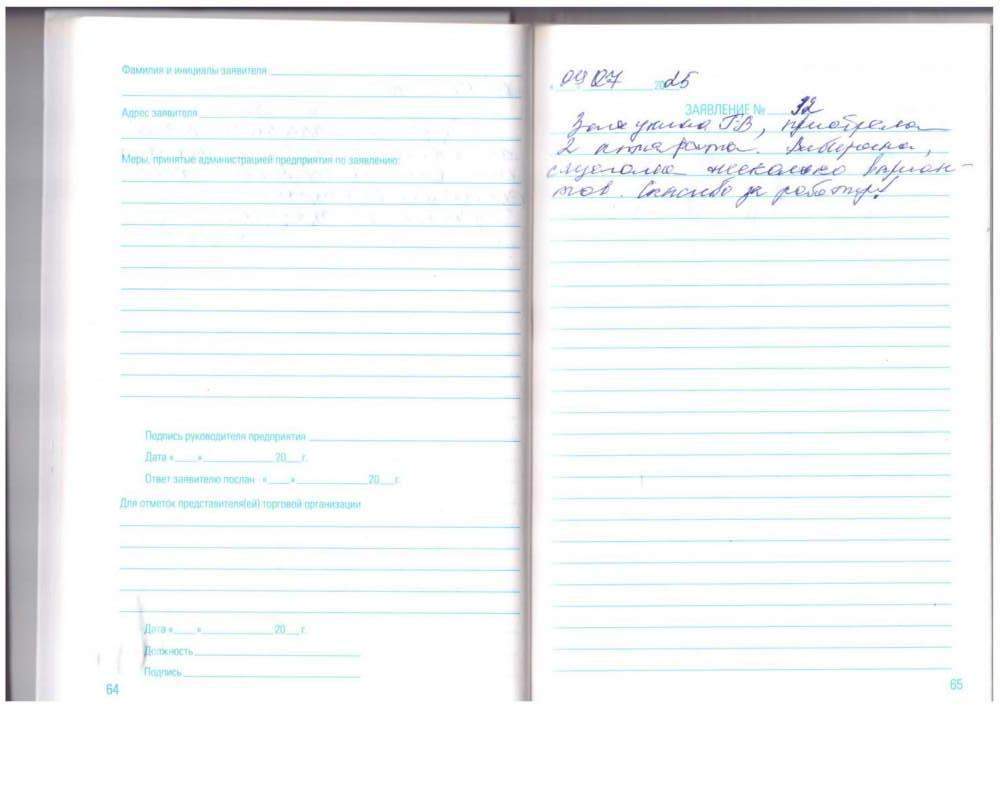 Фамилия и инициалы заявителя
Адрес заявителя
Меры, принятые администрацией предприятия по заявлению:
Подпись руководителя предприятия
Дата « » 20 г.
Ответ заявителю послан « » 20 г.
Для отметок представителя(ей) торговой организации
Дата « » 20 г.
Должность
Подпись
64
09 07 2025
ЗАЯВЛЕНИЕ № 32
Г.В, приобрела
2 аппарата.
несколько вариан-
тов. Спасибо за работу!
65